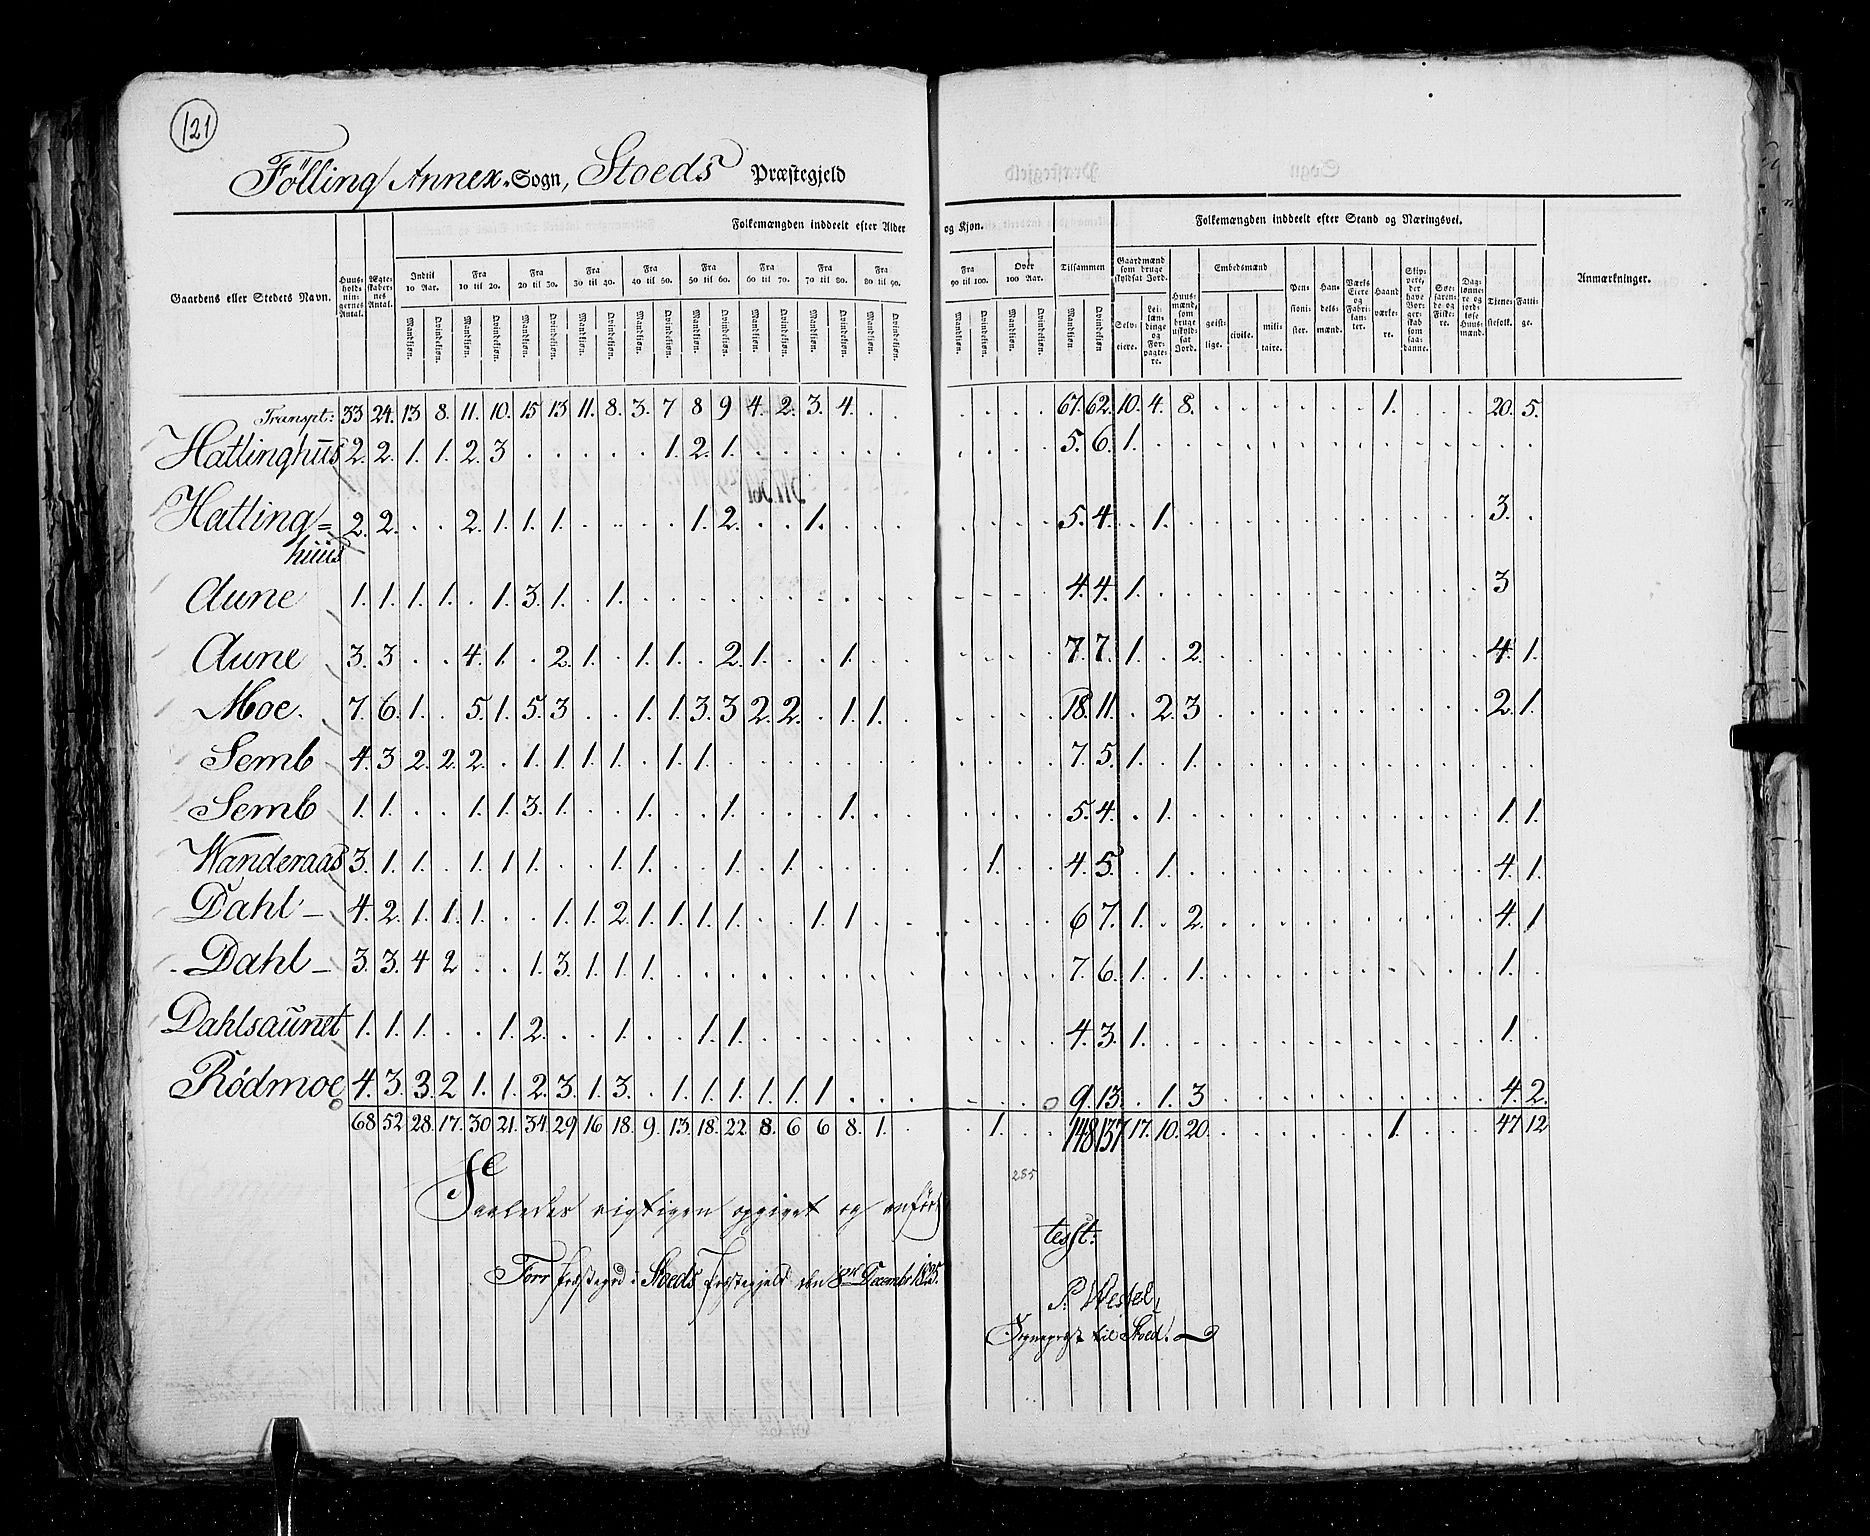 121
Fölling Annex-Sogn, Stoeds Præstegjeld
Gaardens eller Stedets Navn. | Huusholdningernes Antal. | Ægteskabernes Antal. | Folkemængden inddeelt efter Alder og Kjøn. | Tilsammen | Folkemængden inddeelt efter Stand og Næringsvei. | Anmærkninger.
Indtil 10 Aar. | Fra 10 til 20. | Fra 20 til 30. | Fra 30 til 40. | Fra 40 til 50. | Fra 50 til 60. | Fra 60 til 70. | Fra 70 til 80. | Fra 80 til 90. | Fra 90 til 100. | Over 100 Aar.
Mandkjøn. Qvindekjøn.
Gaardmænd som bruge skyldsat Jord. | Selveiere. | Leilændinge og Forpagtere. | Huusmænd, som bruge uskyldsat Jord. | Embedsmænd | geistlige. | civile. | militaire. | Pensionister. | Handelsmænd. | Værks Eiere og Fabrikanter. | Haandværkere. | Skippere, der have Borgerskab som saadanne. | Søefarende og Fiskere. | Daglønnere og jordløse Huusmænd. | Tjenestefolk. | Fattige.
Transpt: 33 24. 13 8. 11. 10. 15 13 11. 8. 3. 7 8 9 4. 2. 3. 4. . . . . . . 67. 62. 10. 4. 8. . . . . . . 1. . . . 20. 5.
Hatlinghüs 2. 2. 1. 1. 2. 3 . . . . . 1. 2. 1. . . . . . . . . . . 5. 6. 1. . . . . . . . . . . . . . .
Hatling= 2. 2. . . 2. 1. 1. 1. . . . . 1. 2. . . 1. . . . . . . . 5. 4. . 1. . . . . . . . . . . . 3. .
hüüs
Aune 1. 1. 1. 1. . 1. 3. 1. . 1. . . . . . . . . . . . . . . 4. 4. 1. . . . . . . . . . . . . 3
Aune 3. 3 . . 4. 1. . 2. 1. . 1. 1. . 2. 1. . . 1. . . . . . . 7. 7. 1. . 2. . . . . . . . . . 4. 1.
Moe. 7. 6. 1. . 5. 1. 5. 3 . . 1. 1. 3. 3 2. 2. . 1. 1. . . . . . 18. 11. . 2. 3 . . . . . . . . . . 2. 1.
Semb 4. 3 2. 2. 2. . 1. 1. 1. 1. . 1. 1. . . . . . . . . . . . 7. 5. 1. . 1. . . . . . . . . . . . .
Semb 1. 1. . . 1. 1. 3. 1. . . 1. . . 1. . . . 1. . . . . . . 5. 4. . 1. . . . . . . . . . . . 1. 1.
Wanderaas 3. 1. 1. . 1. 1. 1. . . 1. 1. . . 1. . 1. . . . . . 1. . . 4. 5. . 1. . . . . . . . . . . . 4. 1.
Dahl - 4. 2. 1. 1. 1. . . 1. 1. 2. 1. 1. 1. 1. . . 1. 1. . . . . . . 6 7. 1. . 2. . . . . . . . . . . 4. 1
Dahl - 3. 3. 4 2 . . 1. 3. 1. 1. 1. . . . . . . . . . . . . . 7. 6. 1. . 1. . . . . . . . . . . 1. .
Dahlsaunet 1. 1. 1. . . 1. 2. . . 1. . . 1. 1. . . . . . . . . . . 4. 3. 1. . . . . . . . . . . . . 1. .
Rödmoe 4. 3. 3. 2 1. 1. 2. 3. 1. 3. . 1. 1. 1. 1. 1. 1. . . . . . . . 9. 13. . 1. 3 . . . . . . . . . . 4. 2.
68 52 28. 17. 30 21. 34. 29 16 18. 9. 13. 18. 22. 8. 6 6 8. 1. . . 1. . . 148 137 17. 10. 20. . . . . . . 1. . . . 47 12
285
Saaledes rigtigen opgivet og anført
test:
Forr Præstegrd i Stoeds Præstegjeld den 8de Decembr 1825.
P. Westel,
Sognepræst til Stoed.